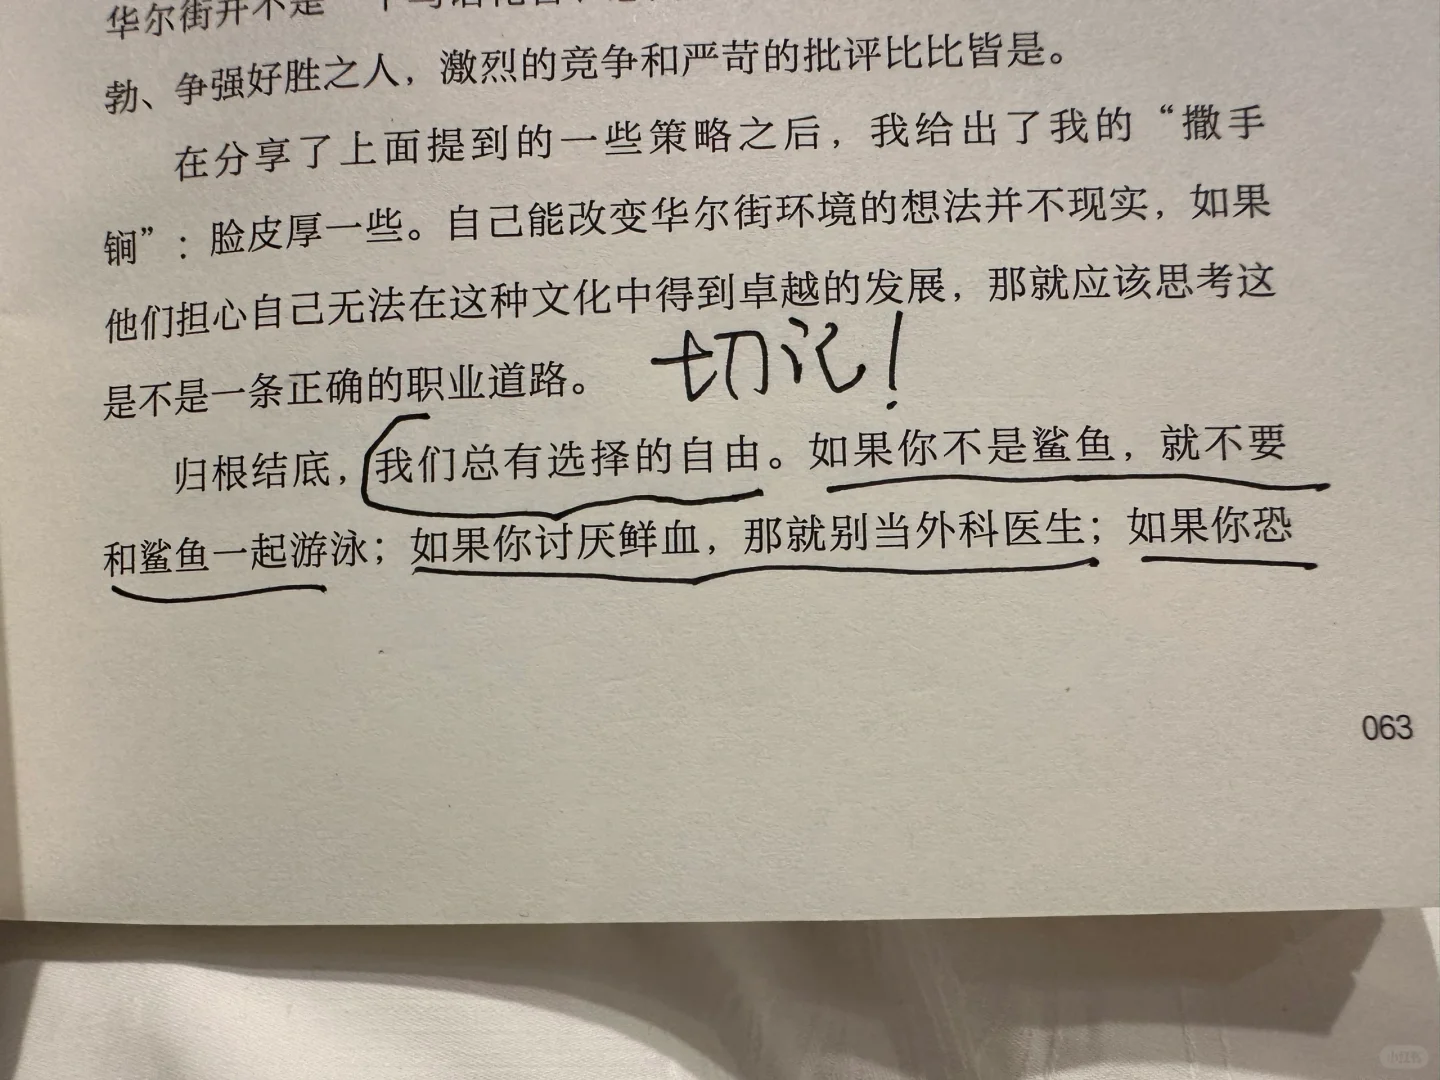 华尔街并不是一个
勃、争强好胜之人，激烈的竞争和严苛的批评比比皆是。
在分享了上面提到的一些策略之后，我给出了我的“撒手
锏”：脸皮厚一些。自己能改变华尔街环境的想法并不现实，如果
他们担心自己无法在这种文化中得到卓越的发展，那就应该思考这
是不是一条正确的职业道路。
切记！
归根结底，我们总有选择的自由。如果你不是鲨鱼，就不要
和鲨鱼一起游泳；如果你讨厌鲜血，那就别当外科医生；如果你恐
063
小红书